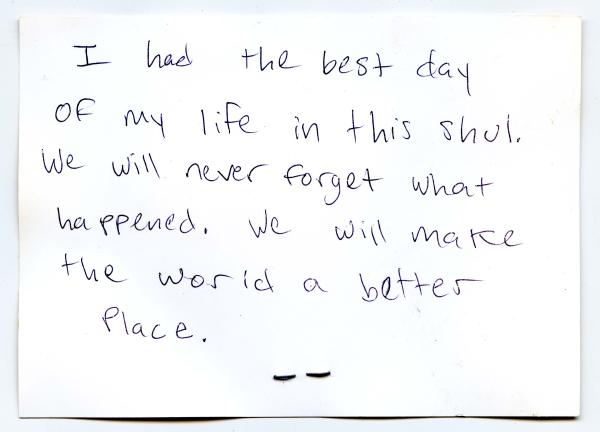 I had the best day
OF my life in this shul.
We will never forget what
happened. We will make
the world a better
Place.